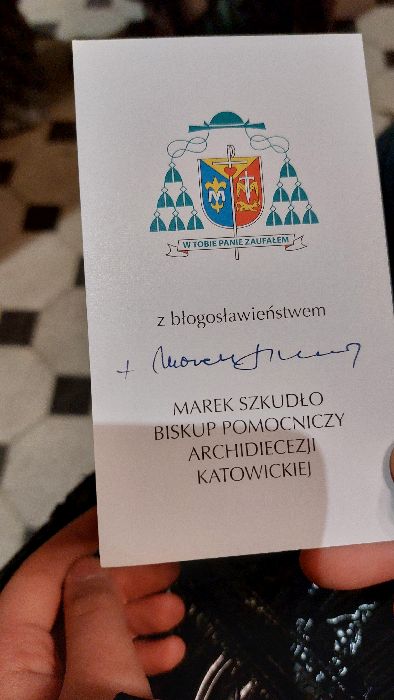 W TOBIE PANIE ZAUFAŁEM
z błogosławieństwem
+ Marek Szkudło
MAREK SZKUDŁO
BISKUP POMOCNICZY
ARCHIDIECEZJI
KATOWICKIEJ